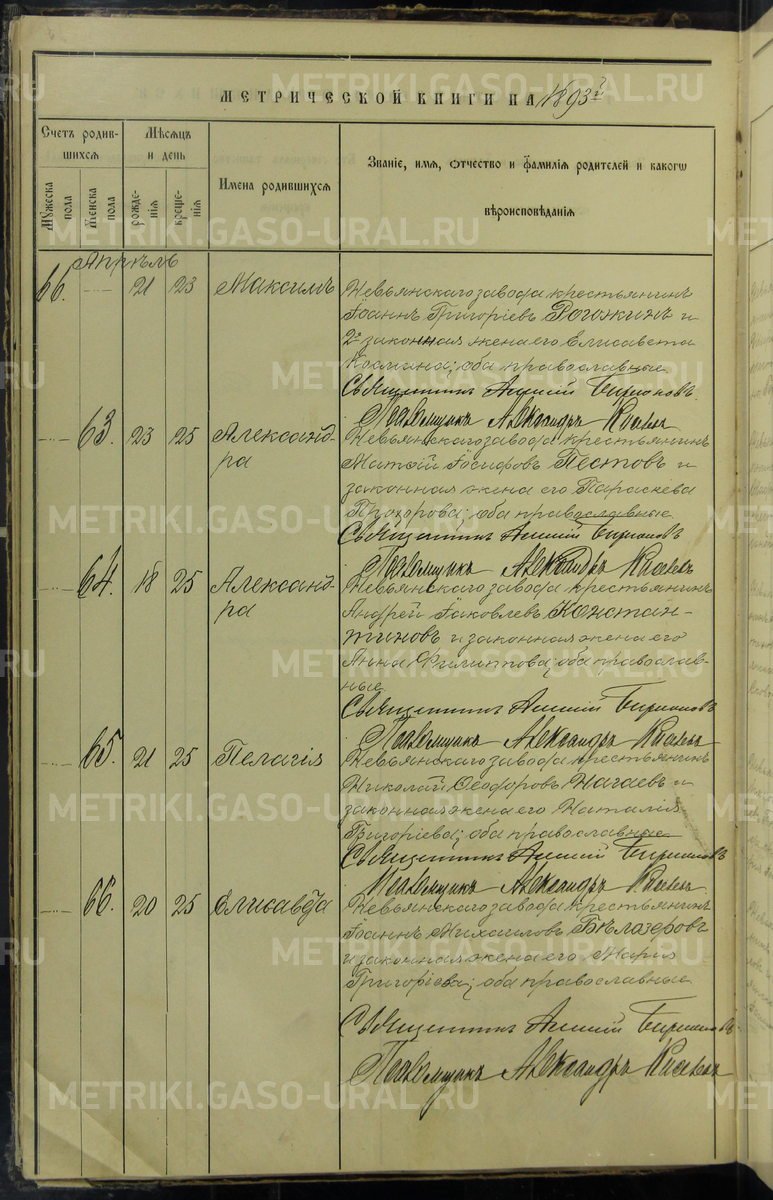 МЕТРИЧЕСКОЙ КНИГИ НА 1893 г.
Счетъ родив-
шихся
Мѣсяцъ
и день
Мужеска
пола
Женска
пола
рожде-
нія
креще-
нія
Имена родившихся
Званіе, имя, отчество и фамилія родителей и какого
вѣроисповѣданія
Апрѣль
66. 21 23 Максимъ Невьянскаго завода крестьянинъ
Іоаннъ Григоріевъ Рогожкинъ и
законная жена его Елисавета
оба православные
Священникъ
Псаломщикъ Александръ
63. 23 25 Александ-
ра
Невьянскаго завода крестьянинъ
Матѳій Іосифовъ Пестовъ и
законная жена его Параскева
Прохорова; оба православные
Священникъ
Псаломщикъ Александръ
64. 18 25 Александ-
ра
Невьянскаго завода крестьянинъ
Андрей Іаковлевъ Констан-
тиновъ и законная жена его
Анна Филиппова; оба православ-
ные
Священникъ
Псаломщикъ Александръ
65. 21 25 Пелагія Невьянскаго завода крестьянинъ
Николай Ѳеодоровъ Нагаевъ и
законная жена его Наталія
оба православные
Священникъ
Псаломщикъ Александръ
66. 20 25 Елисавета Невьянскаго завода крестьянинъ
Іоаннъ Михаиловъ Бѣлозеровъ
и законная жена его Марія
Григоріева; оба православные
Священникъ
Псаломщикъ Александръ
METRIKI.GASO-URAL.RU